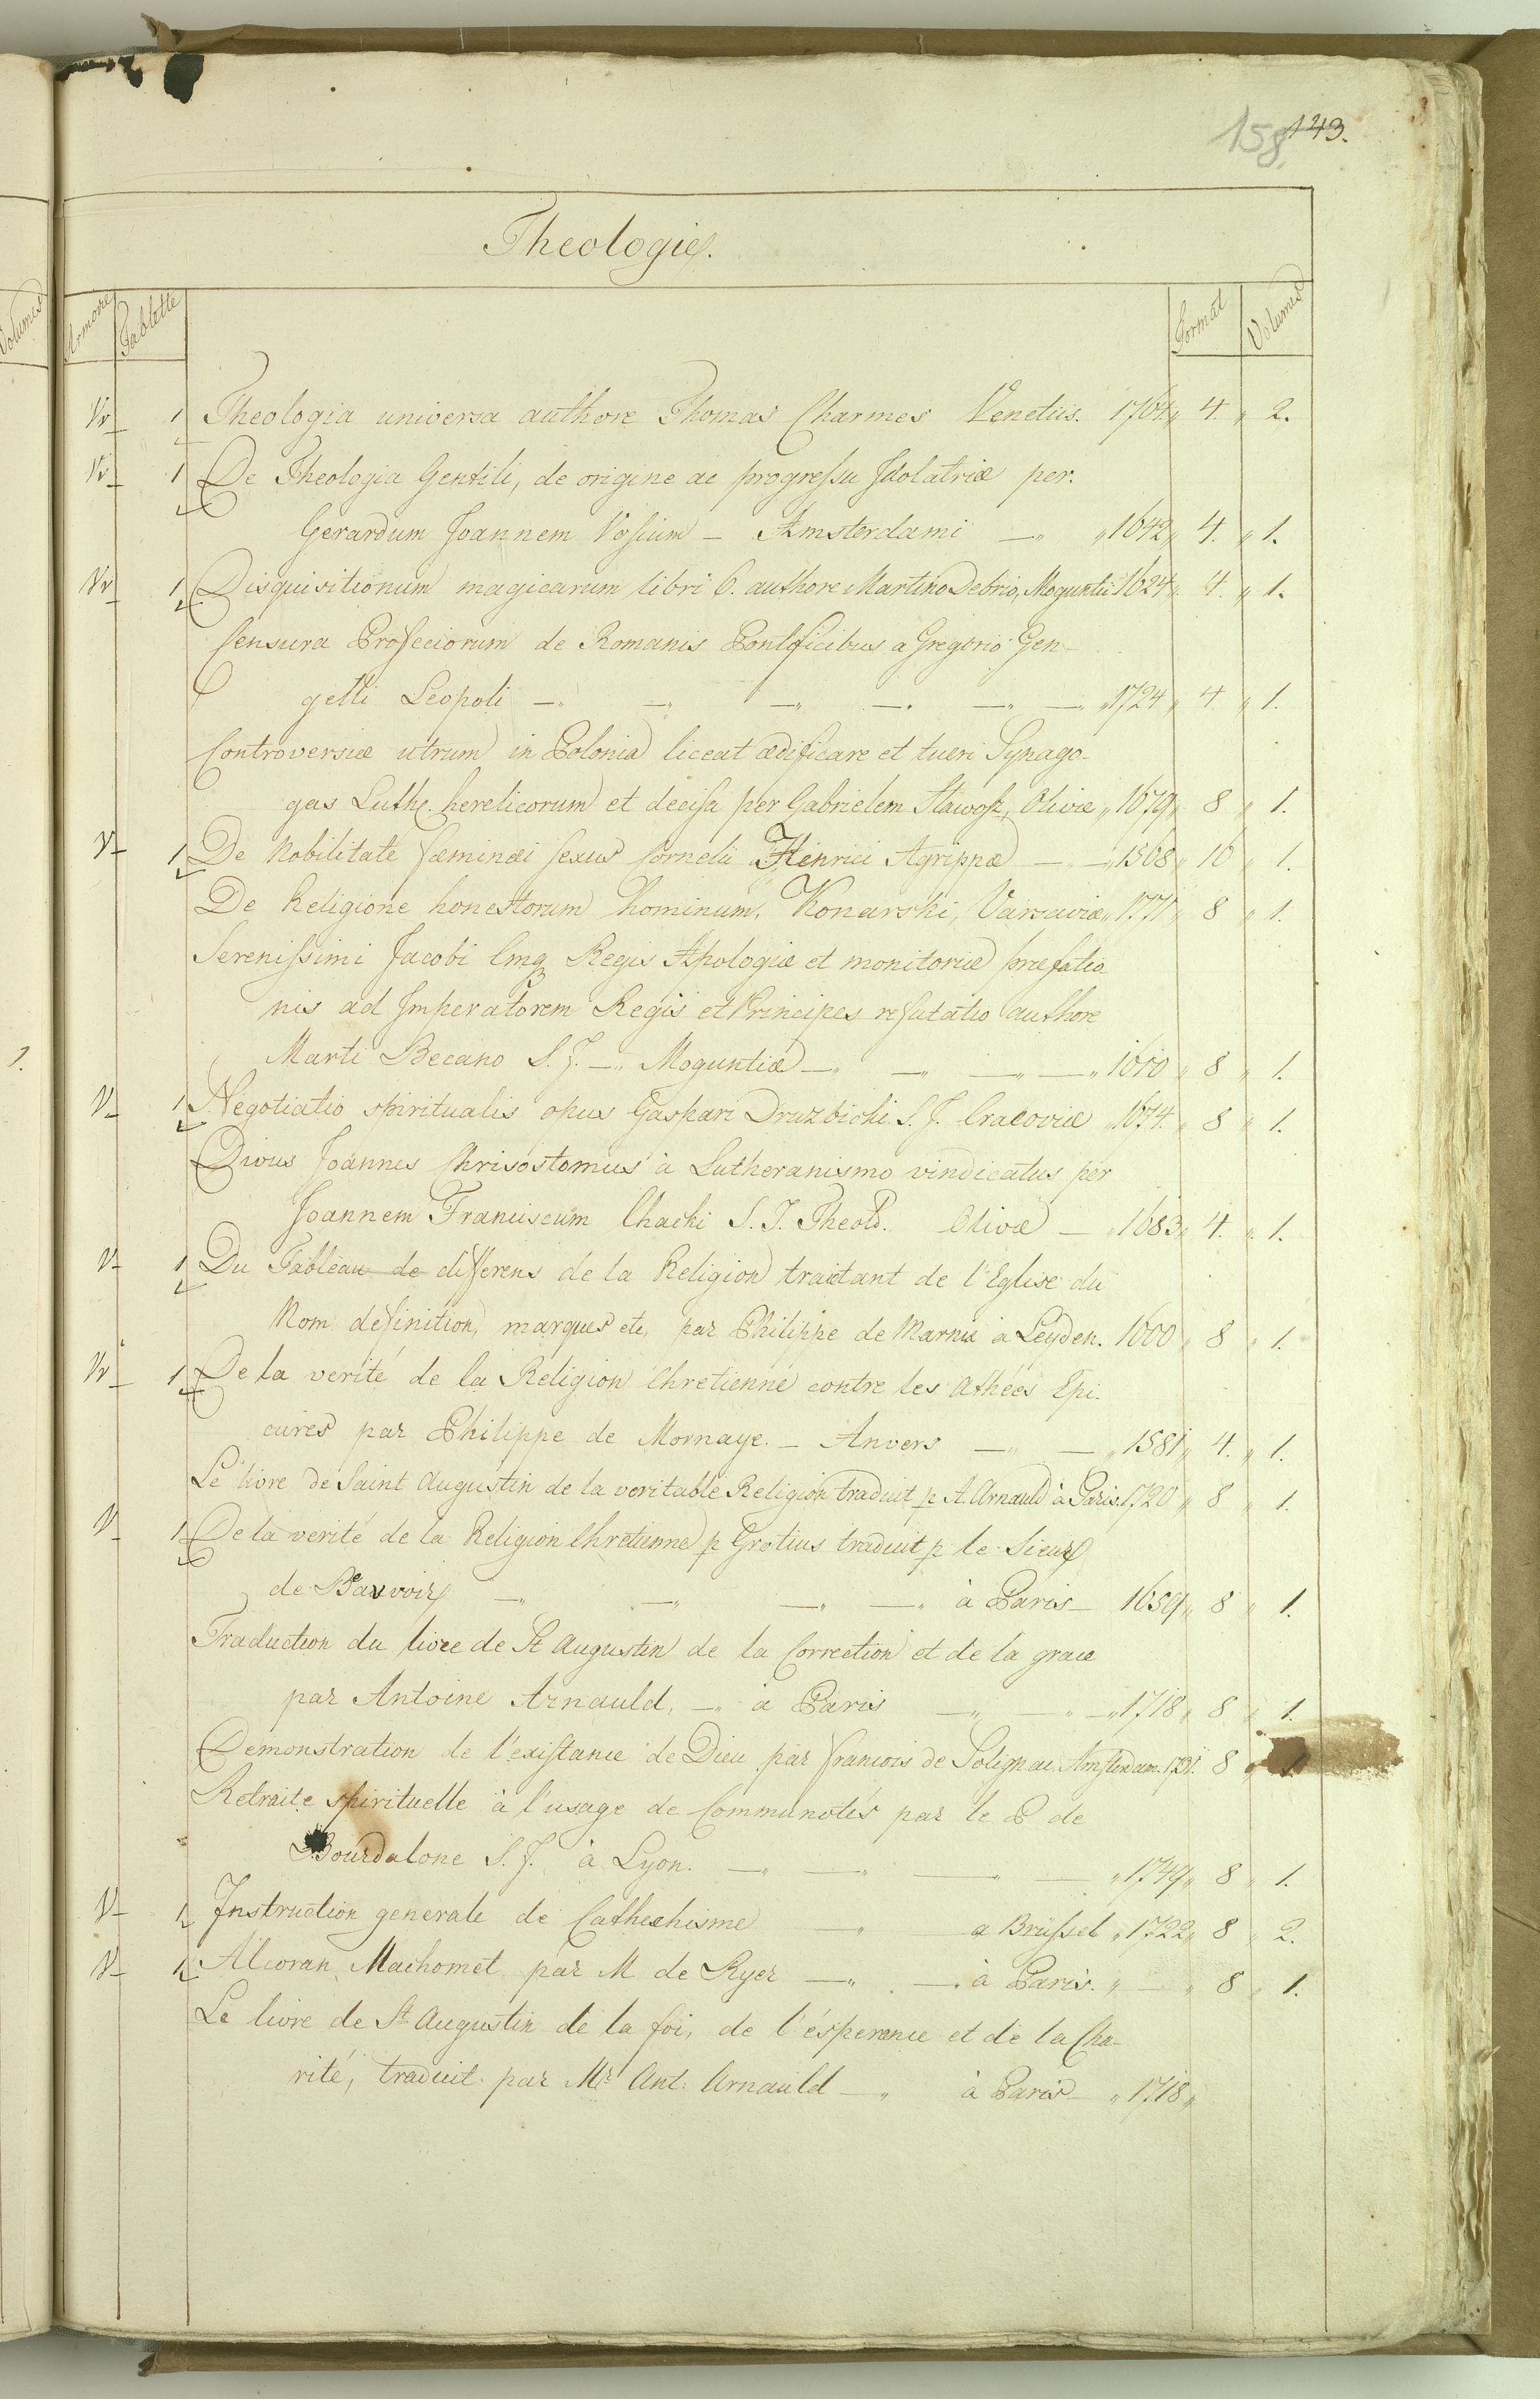 158, 143.
Theologie.
Volumes Armoire Tablette Format Volumes
Vv 1 Theologia universa authore Thomas Charmes Venetiis. 1764 „ 4. „ 2.
Vv 1 De Theologia Gentili, de origine ac progressu Idolatriæ per.
Gerardum Joannem Vossium — Amsterdami —„ „ 1642 „ 4. „ 1.
Vv 1 Disquisitionum magicarum libri 6. authore Martino Debrio, Moguntii 1624 „ 4. „ 1.
Censura Profeciorum de Romanis Pontificibus a Gregorio Gen-
gelli Leopoli —„ —„ —„ —„ —„ —„ 1724 „ 4 „ 1.
Controversiæ utrum in Polonia liceat ædificare et tueri Synago-
gas Luthe. herelicorum et decisa per Gabrielem Stawosz, Olivæ „ 1679 „ 8 „ 1.
V 1 De Nobilitate fæminæi sexus Cornelii Henrici Agrippæ — — „ 1568 „ 16 „ 1.
De Religione honestorum hominum, Konarski, Varsaviæ „ 1771 „ 8 „ 1.
Serenissimi Jacobi Regis Apologiæ et monitoriæ præfatio
nis ad Imperatorem Regis et Principes refutatio authore
1. Marti Becano S. J. —„ Moguntiæ —„ —„ —„ —„ 1610 „ 8 „ 1.
V 1 Negotiatio spiritualis opus Gaspari Druzbicki S. J. Cracoviæ „ 1674 „ 8 „ 1.
Divus Joannes Chrisostomus à Lutheranismo vindicatus per
Joannem Franciscum Chacki S. J. Theold. Olivæ — „ 1683 „ 4. „ 1.
V 1 Du Tableau de differens de la Religion traitant de l'Eglise du
Nom definition, marques etc, par Philippe de Marnix a Leyden. 1600 „ 8 „ 1.
Vv 1 De la verité de la Religion Chretienne contre les Athées Epi-
cures par Philippe de Mornaye. — Anvers —„ — „ 1581 „ 4. „ 1.
Le livre de Saint Augustin de la veritable Religion traduit p A. Arnauld à Paris. 1720 „ 8 „ 1.
V 1 De la verité de la Religion Chretienne p Grotius traduit p le Sieur
de Beauvoir —„ —„ —„ —„ à Paris — 1659 „ 8 „ 1.
Traduction du livre de St Augustin de la Correction et de la grace
par Antoine Arnauld, —„ à Paris —„ —„ —„ 1718 „ 8 „ 1.
Démonstration de l'existance de Dieu par francois de Solignac, Amsterdam. 1731. 8 „ 1.
Retraite spirituelle à l'usage de Communotés par le P de
Bourdalone S. J. à Lyon. —„ —„ —„ — „ 1749 „ 8 „ 1.
V 1 Instruction generale de Cathechisme —„ — a Brussel „ 1722 „ 8 „ 2.
V 1 Alcoran Machomet par M de Ryer —„ —„ à Paris. „ — „ 8 „ 1.
Le livre de St Augustin de la foi, de l'ésperance et de la Cha-
rité, traduit par Mr Ant: Arnauld —„ à Paris — „ 1718 „